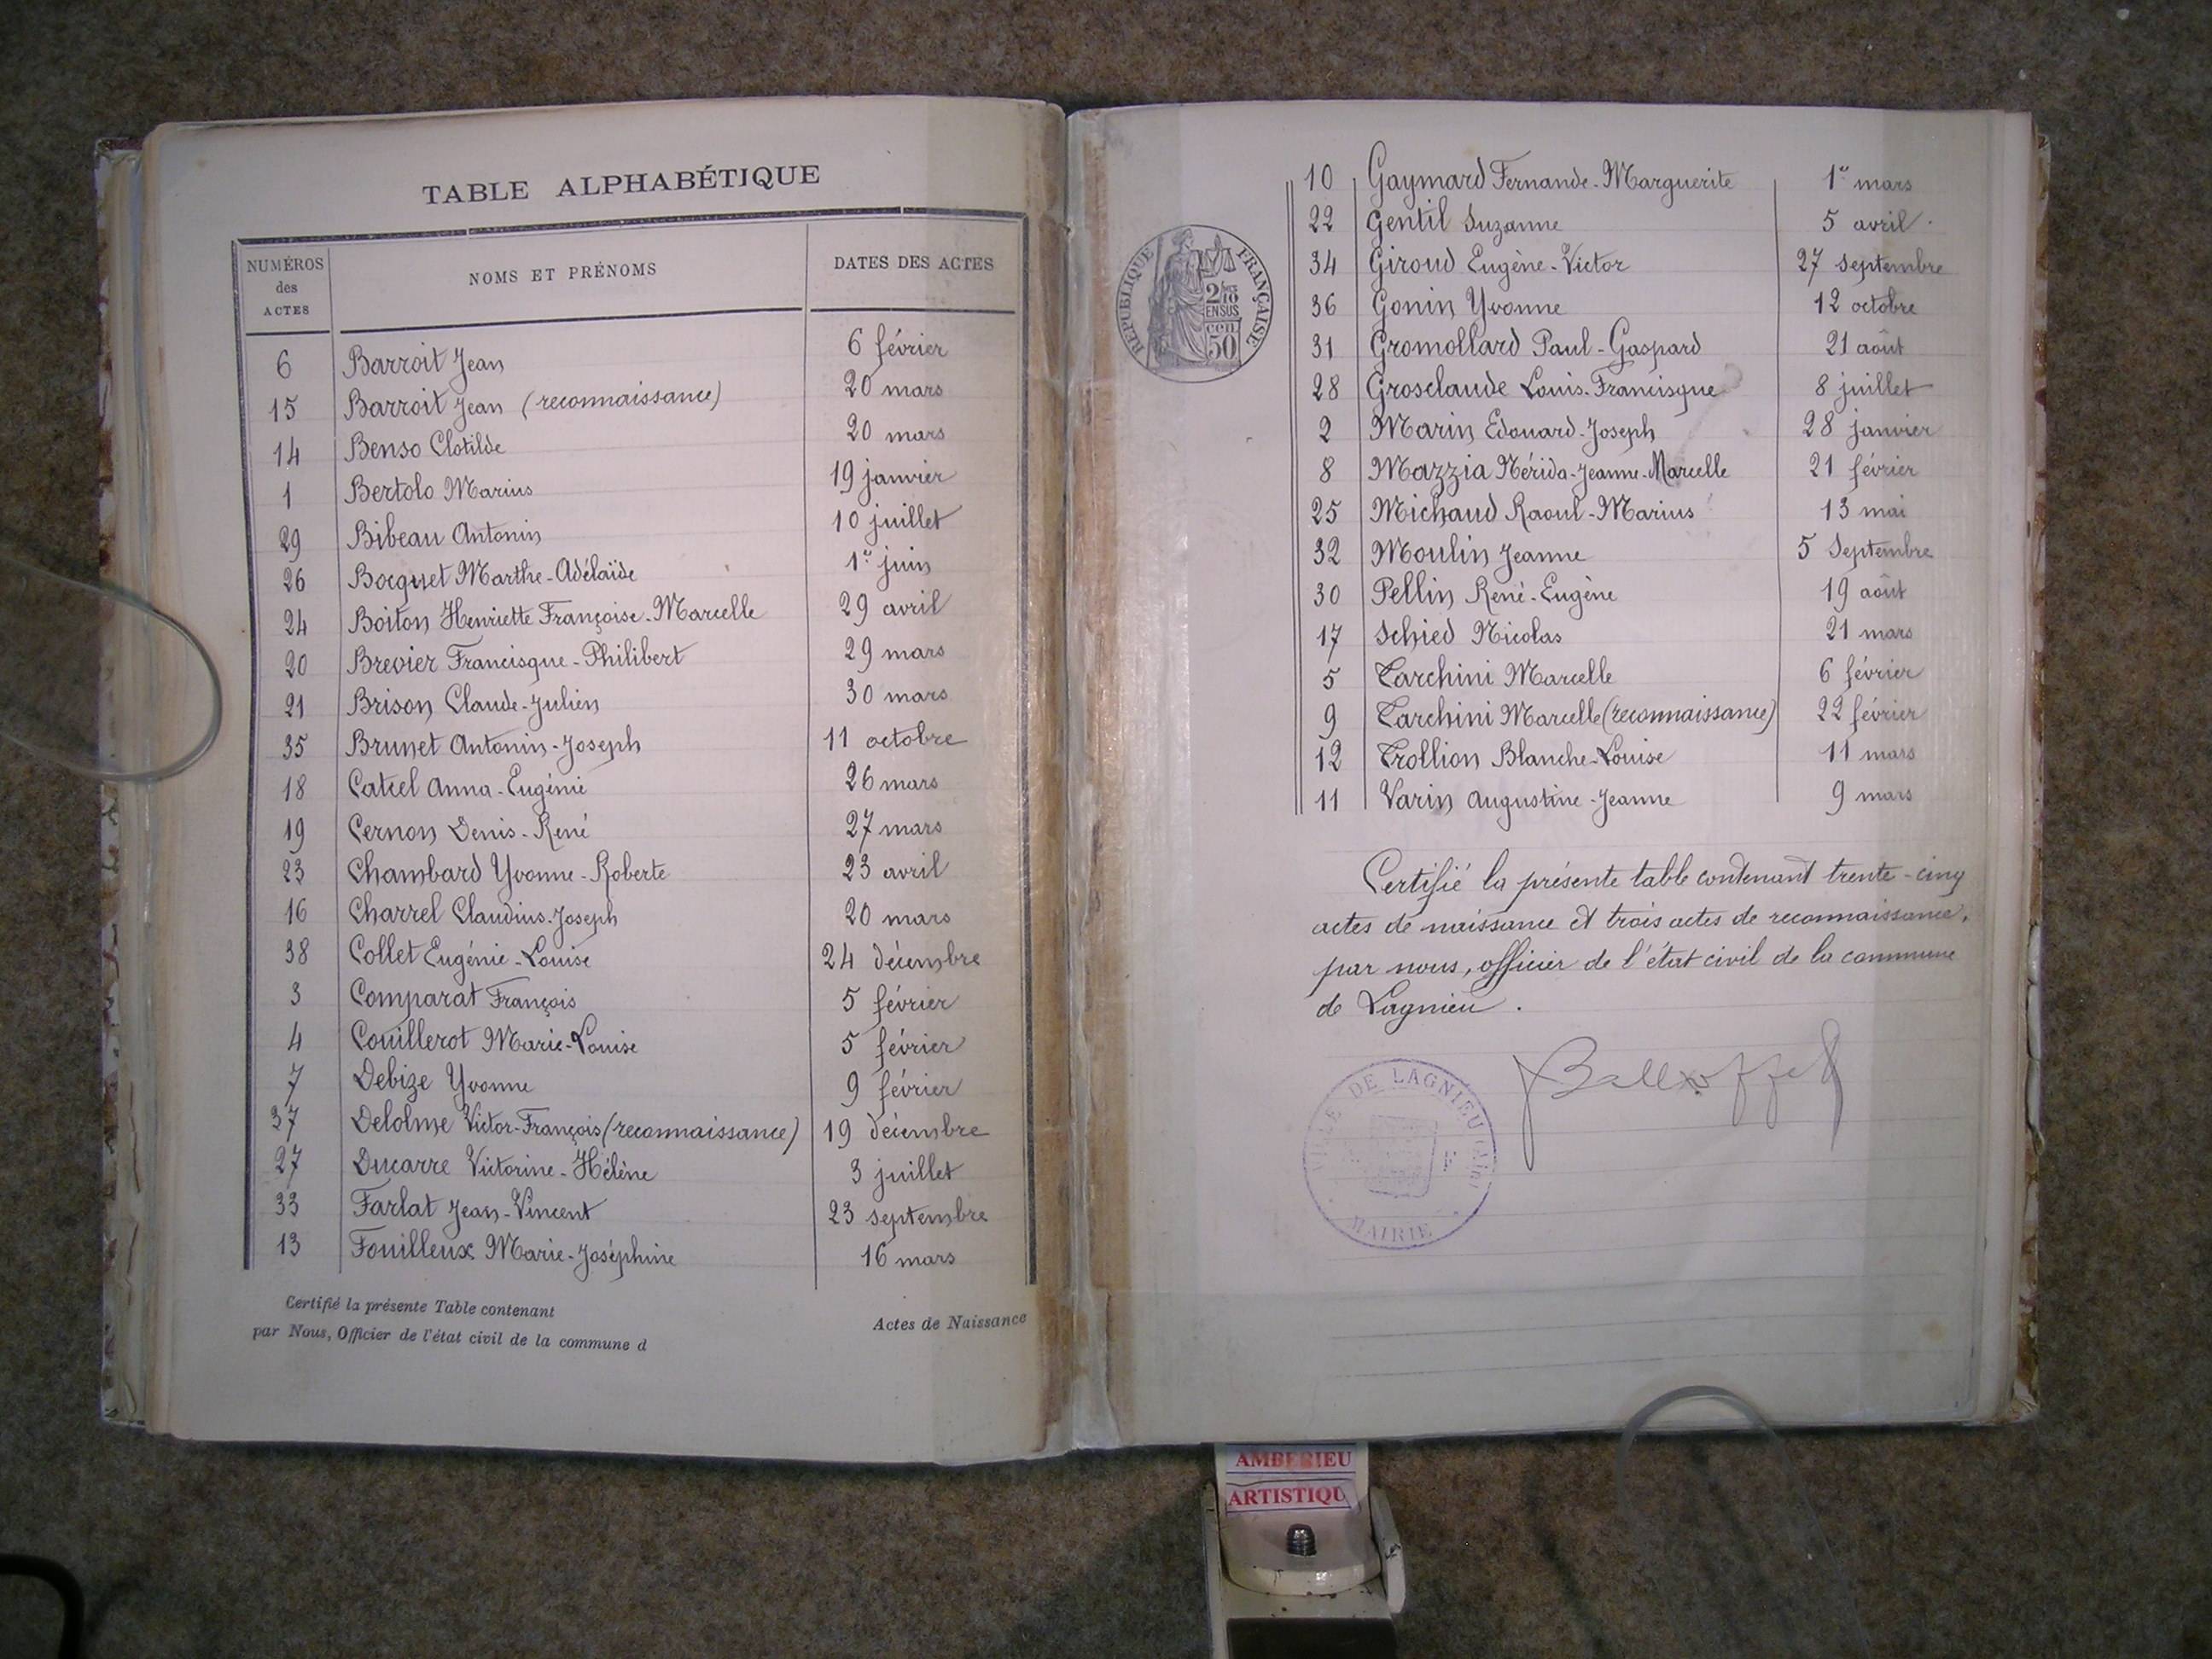 TABLE ALPHABÉTIQUE
NUMÉROS des ACTES NOMS ET PRÉNOMS DATES DES ACTES
6 Barroit Jean 6 février
15 Barroit Jean (reconnaissance) 20 mars
14 Benso Clotilde 20 mars
1 Bertolo Marius 19 janvier
29 Bibeau Antonin 10 juillet
26 Bocquet Marthe-Adélaïde 1er juin
24 Boiton Henriette Françoise-Marcelle 29 avril
20 Brevier Francisque-Philibert 29 mars
21 Brison Claude-Julien 30 mars
35 Brunet Antonin-Joseph 11 octobre
18 Catrel Anna-Eugénie 26 mars
19 Cernon Denis-René 27 mars
23 Chambard Yvonne-Roberte 23 avril
16 Charrel Claudius-Joseph 20 mars
38 Collet Eugénie-Louise 24 décembre
3 Comparat François 5 février
4 Couillerot Marie-Louise 5 février
7 Debize Yvonne 9 février
37 Delolme Victor-François (reconnaissance) 19 décembre
27 Ducarre Victorine-Hélène 3 juillet
33 Farlat Jean-Vincent 23 septembre
13 Fouilleux Marie-Joséphine 16 mars
Certifié la présente Table contenant Actes de Naissance
par Nous, Officier de l'état civil de la commune d
RÉPUBLIQUE FRANÇAISE
2/10 EN SUS
50 cen
10 Gaymard Fernande-Marguerite 1er mars
22 Gentil Suzanne 5 avril
34 Giroud Eugène-Victor 27 Septembre
36 Gonin Yvonne 12 octobre
31 Gromollard Paul-Gaspard 21 août
28 Grosclaude Louis-Francisque 8 juillet
2 Marin Edouard-Joseph 28 janvier
8 Mazzia Nérida-Jeanne-Marcelle 21 février
25 Michaud Raoul-Marius 13 mai
32 Moulin Jeanne 5 Septembre
30 Pellin René-Eugène 19 août
17 Schied Nicolas 21 mars
5 Tarchini Marcelle 6 février
9 Tarchini Marcelle (reconnaissance) 22 février
12 Trollion Blanche-Louise 11 mars
11 Varin Augustine-Jeanne 9 mars
Certifié la présente table contenant trente-cinq
actes de naissance et trois actes de reconnaissance,
par nous, officier de l'état civil de la commune
de Lagnieu.
VILLE DE LAGNIEU (Ain)
MAIRIE
AMBERIEU
ARTISTIQU